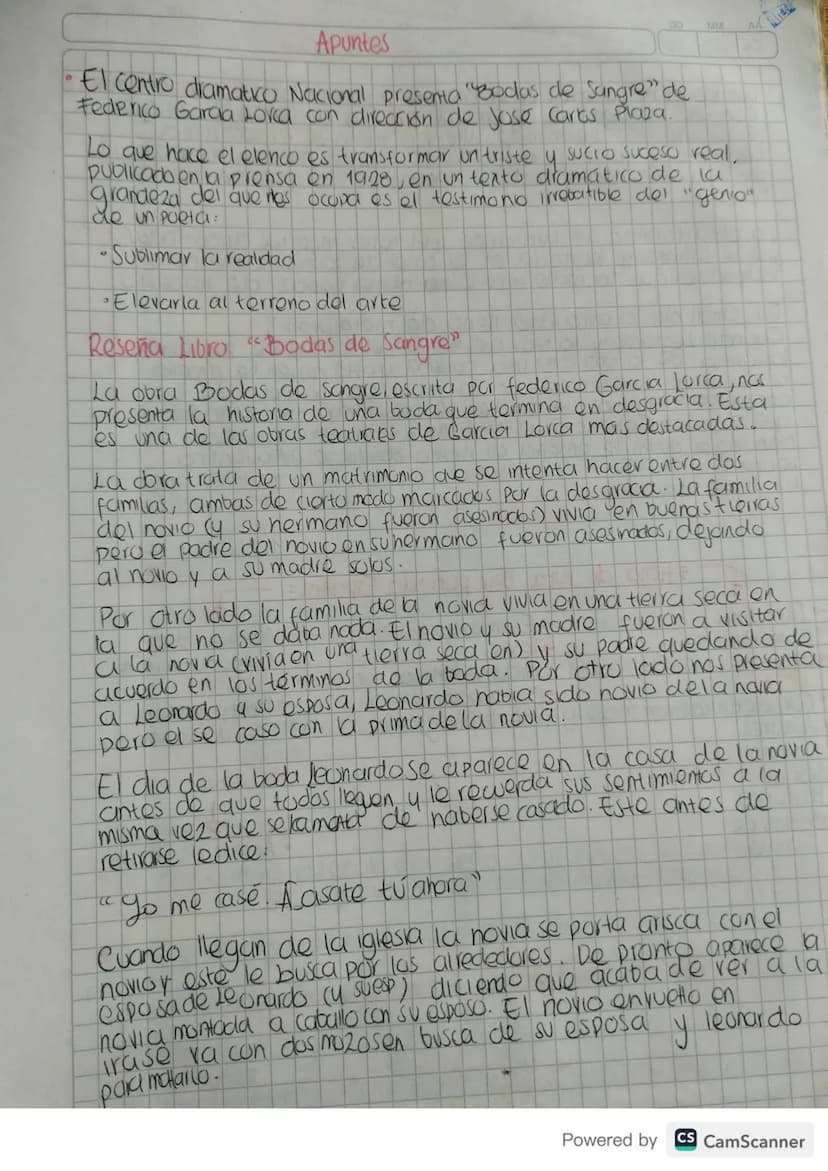 Apuntes
• El centro dramatico Nacional presenta "Bodas de Sangre" de
Federico Garcia Lorca con dirección de José Carlos Plaza.
Lo que hace el elenco es transformar un triste y sucio suceso real,
publicado en la prensa en 1928, en un texto dramático de la
grandeza del que nos ocupa es el testimonio irrebatible del "genio"
de un poeta:
• Sublimar la realidad
• Elevarla al terreno del arte
Reseña Libro "Bodas de Sangre"
La obra Bodas de sangre, escrita por federico Garcia lorca, nos
presenta la historia de una boda que termina en desgracia. Esta
es una de las obras teatrales de Garcia Lorca mas destacadas.
La obra trata de un matrimonio que se intenta hacer entre dos
familias, ambas de cierto modo marcadas por la desgracia. La familia
del novio (y su hermano fueron asesinados) vivia en buenas tierras
pero el padre del novio en su hermano fueron asesinados, dejando
al novio y a su madre solos.
Por otro lado la familia de la novia vivia en una tierra seca en
la que no se daba nada. El novio y su madre fueron a visitar
a la novia (vivia en una tierra seca en) y su padre quedando de
acuerdo en los términos de la boda. Por otro lado nos presenta
a Leonardo y su esposa, Leonardo habia sido novio de la novia
pero el se caso con la prima de la novia.
El dia de la boda leonardo se aparece en la casa de la novia
antes de que todos llegen y le recuerda sus sentimientos a la
misma vez que se lamenta de haberse casado. Este antes de
retirarse le dice:
"Yo me casé. Casate tú ahora"
Cuando llegan de la iglesia la novia se porta arisca con el
novio y este le busca por los alrededores. De pronto aparece la
esposa de leonardo (y su esp) diciendo que acaba de ver a la
novia montada a caballo con su esposo. El novio envuelto en
irase va con dos mozos en busca de su esposa y leonardo
para matarlo.
Powered by CS CamScanner